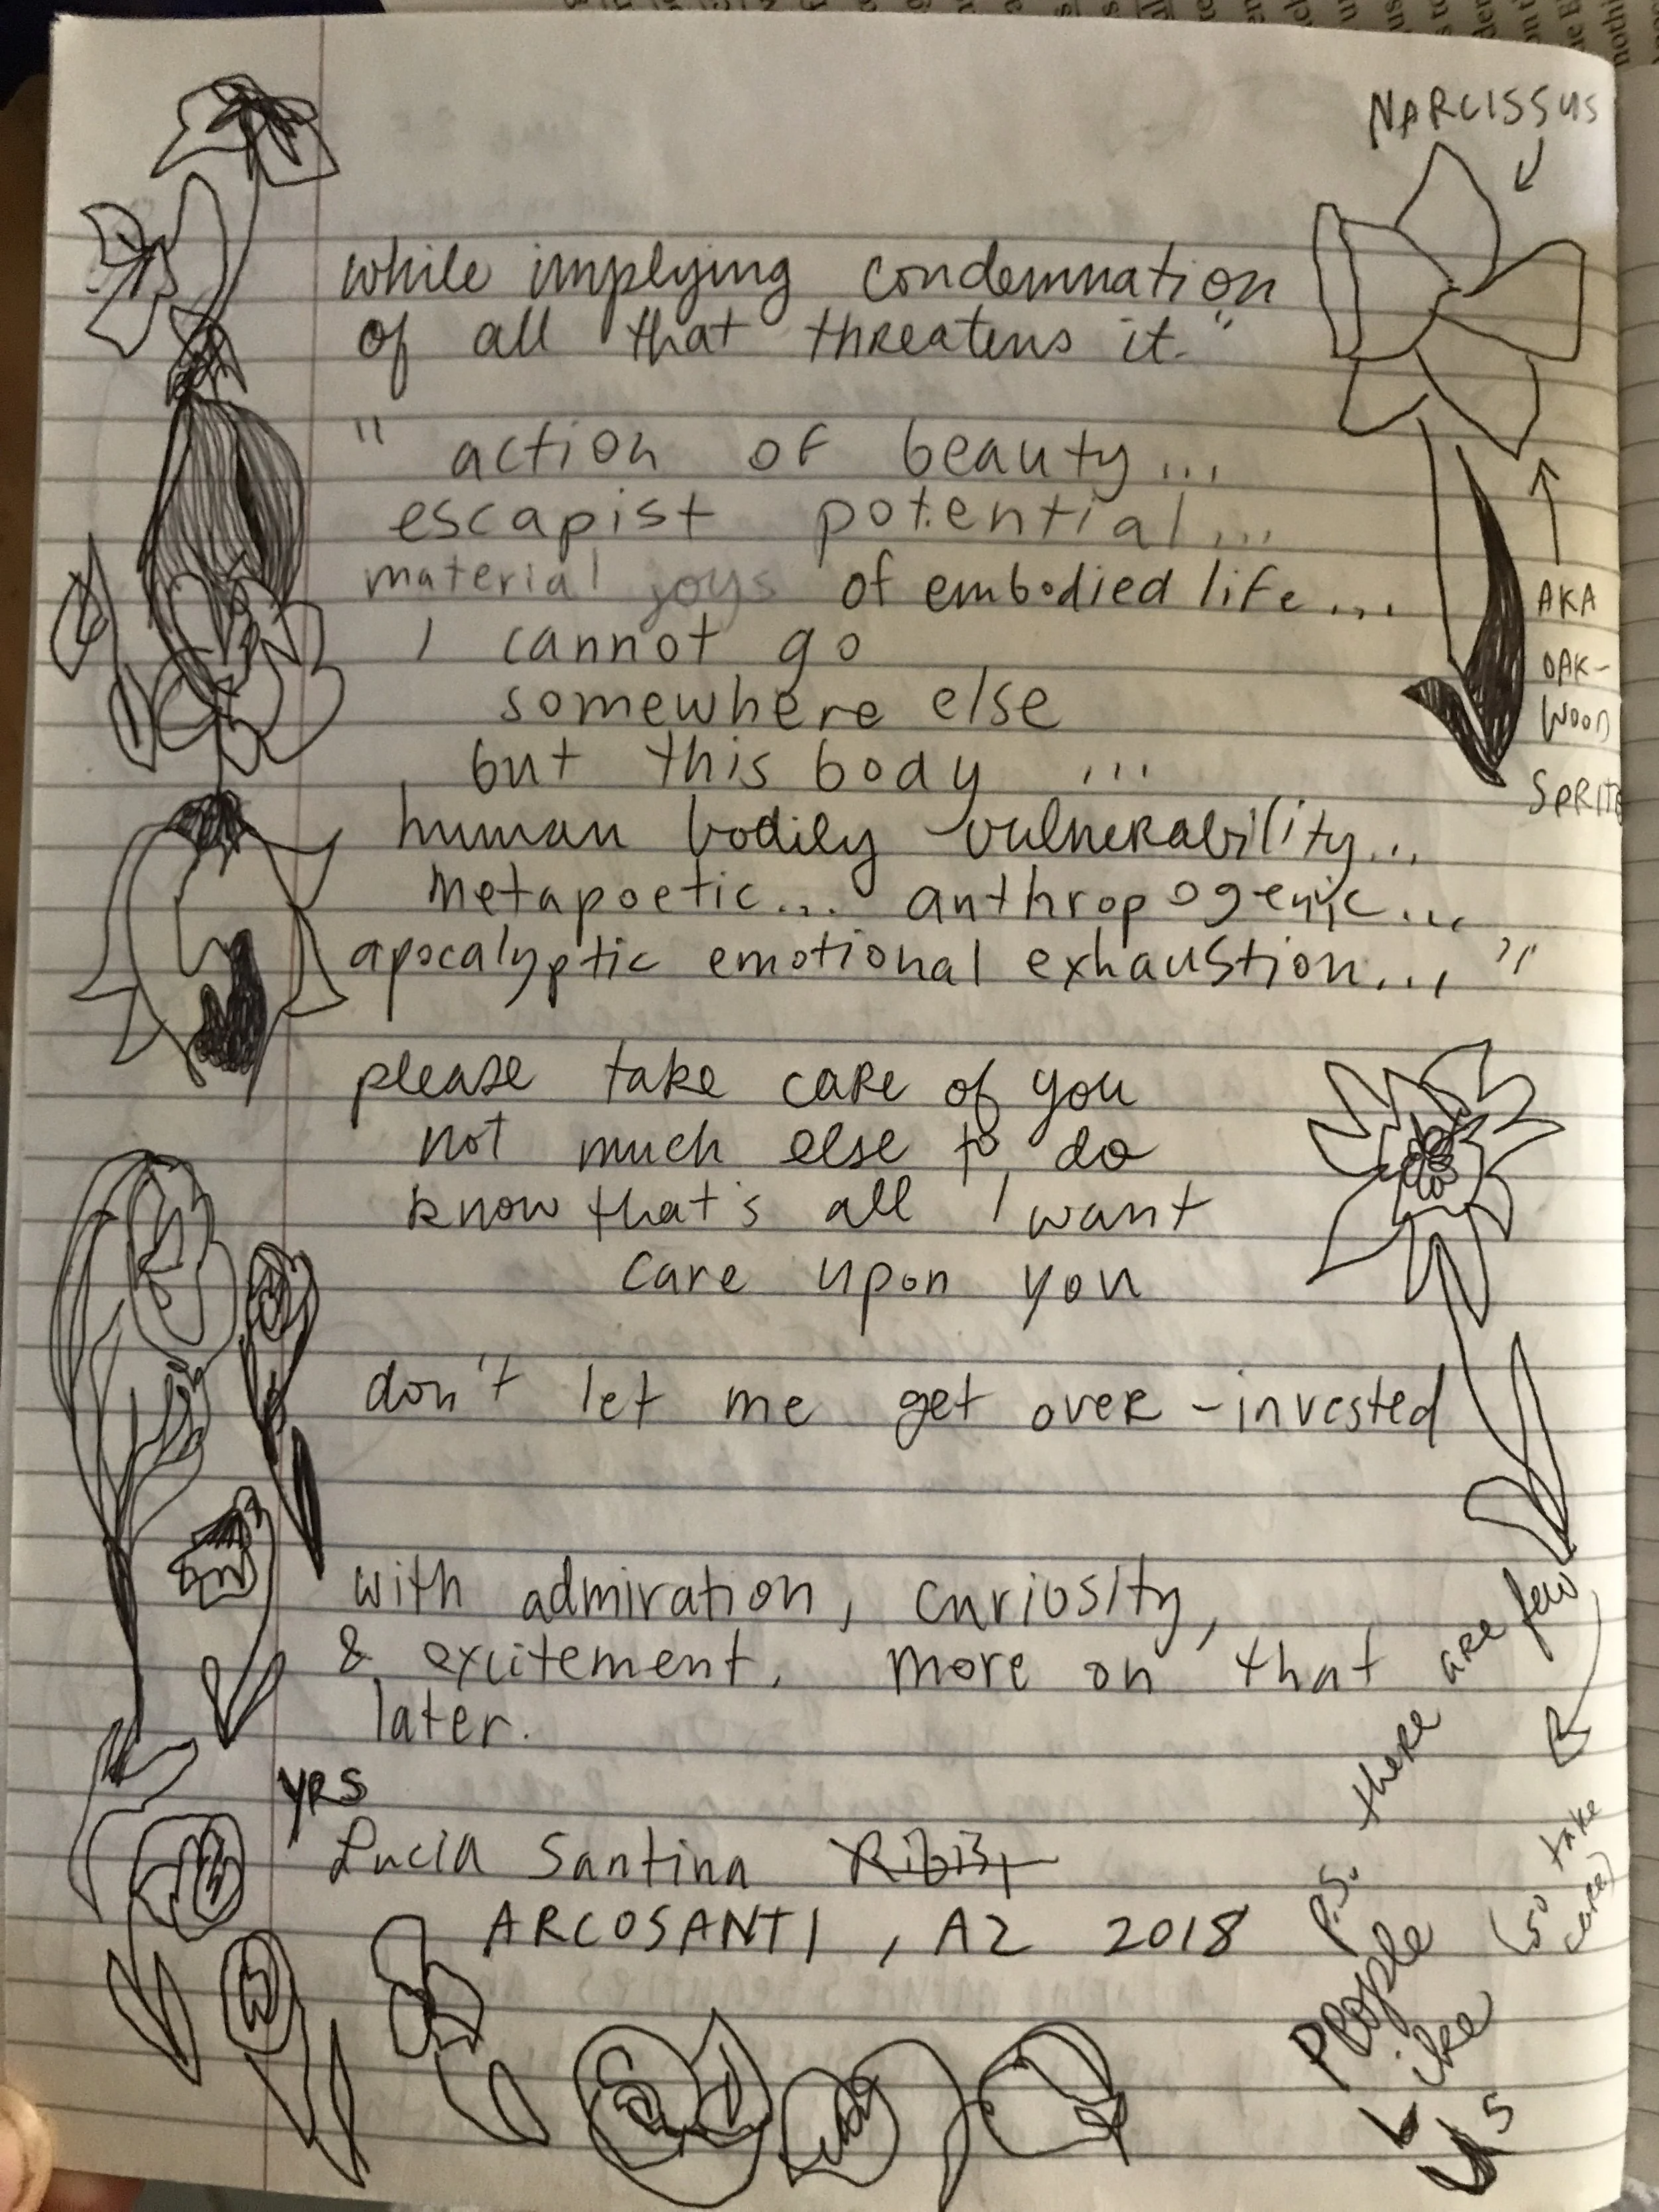 NARCISSUS
while implying condemnation
of all that threatens it."
" action of beauty...
escapist potential...
material joys of embodied life...
I cannot go
somewhere else
but this body ...
human bodily vulnerability...
metapoetic... anthropogenic...
apocalyptic emotional exhaustion... "
AKA
OAK-
WOOD
SPRITE
please take care of you
not much else to do
know that's all I want
care upon you
don't let me get over-invested
with admiration, curiosity,
& excitement. more on that
later.
YRS
Lucia Santina
ARCOSANTI, AZ 2018
P.S. there are few
People
Like
Us
(so take
care)